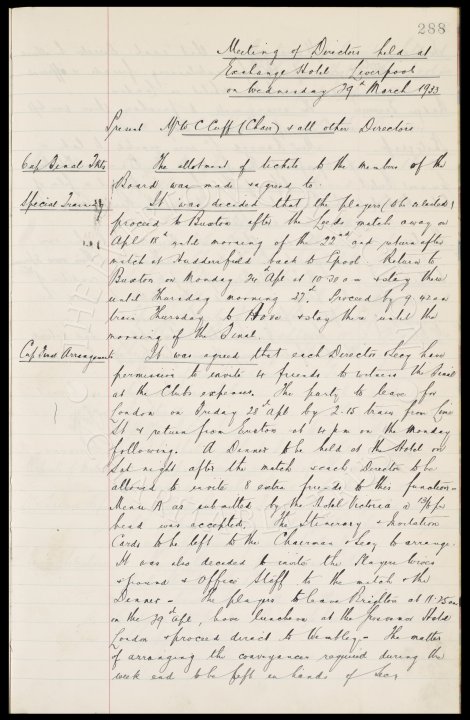 288
Meeting of Directors held at
Exchange Hotel Liverpool
on Wednesday 29th March 1933
Present Mr W C Cuff (Chair) & all other Directors
Cup Final Tkts
The allotment of tickets to the members of the
Board was made & agreed to.
Special Training
It was decided that the players (to be selected)
proceed to Buxton after the Leeds match away on
Apl 18th until morning of the 22nd and return after
match at Huddersfield back to Lpool. Return to
Buxton on Monday 24th Apl at 10.30 am & stay there
until Thursday morning 27th. Proceed by 9.42 am
train Thursday to Hove & stay there until the
morning of the Final.
Cup Final Arrangements
It was agreed that each Director & Secy have
permission to invite 4 friends to witness the Final
at the Clubs expense. The party to leave for
London on Friday 28th Apl by 2-15 train from Lime
St & return from Euston at 4 pm on the Monday
following. A Dinner to be held at the Hotel on
Sat night after the match & each Director to be
allowed to invite 8 extra friends to this function -
Menu A as submitted by the Hotel Victoria @ per
head was accepted. The Itinerary & Invitation
Cards to be left to the Chairman & Secy to arrange.
It was also decided to invite the Players wives
& ground & Office Staff to the match & the
Dinner - The players to leave Brighton at 11-25 am
on the 29th Apl, have luncheon at the Hotel
London & proceed direct to Wembley - The matter
of arranging the conveyances required during the
week end to be left in hands of Secy